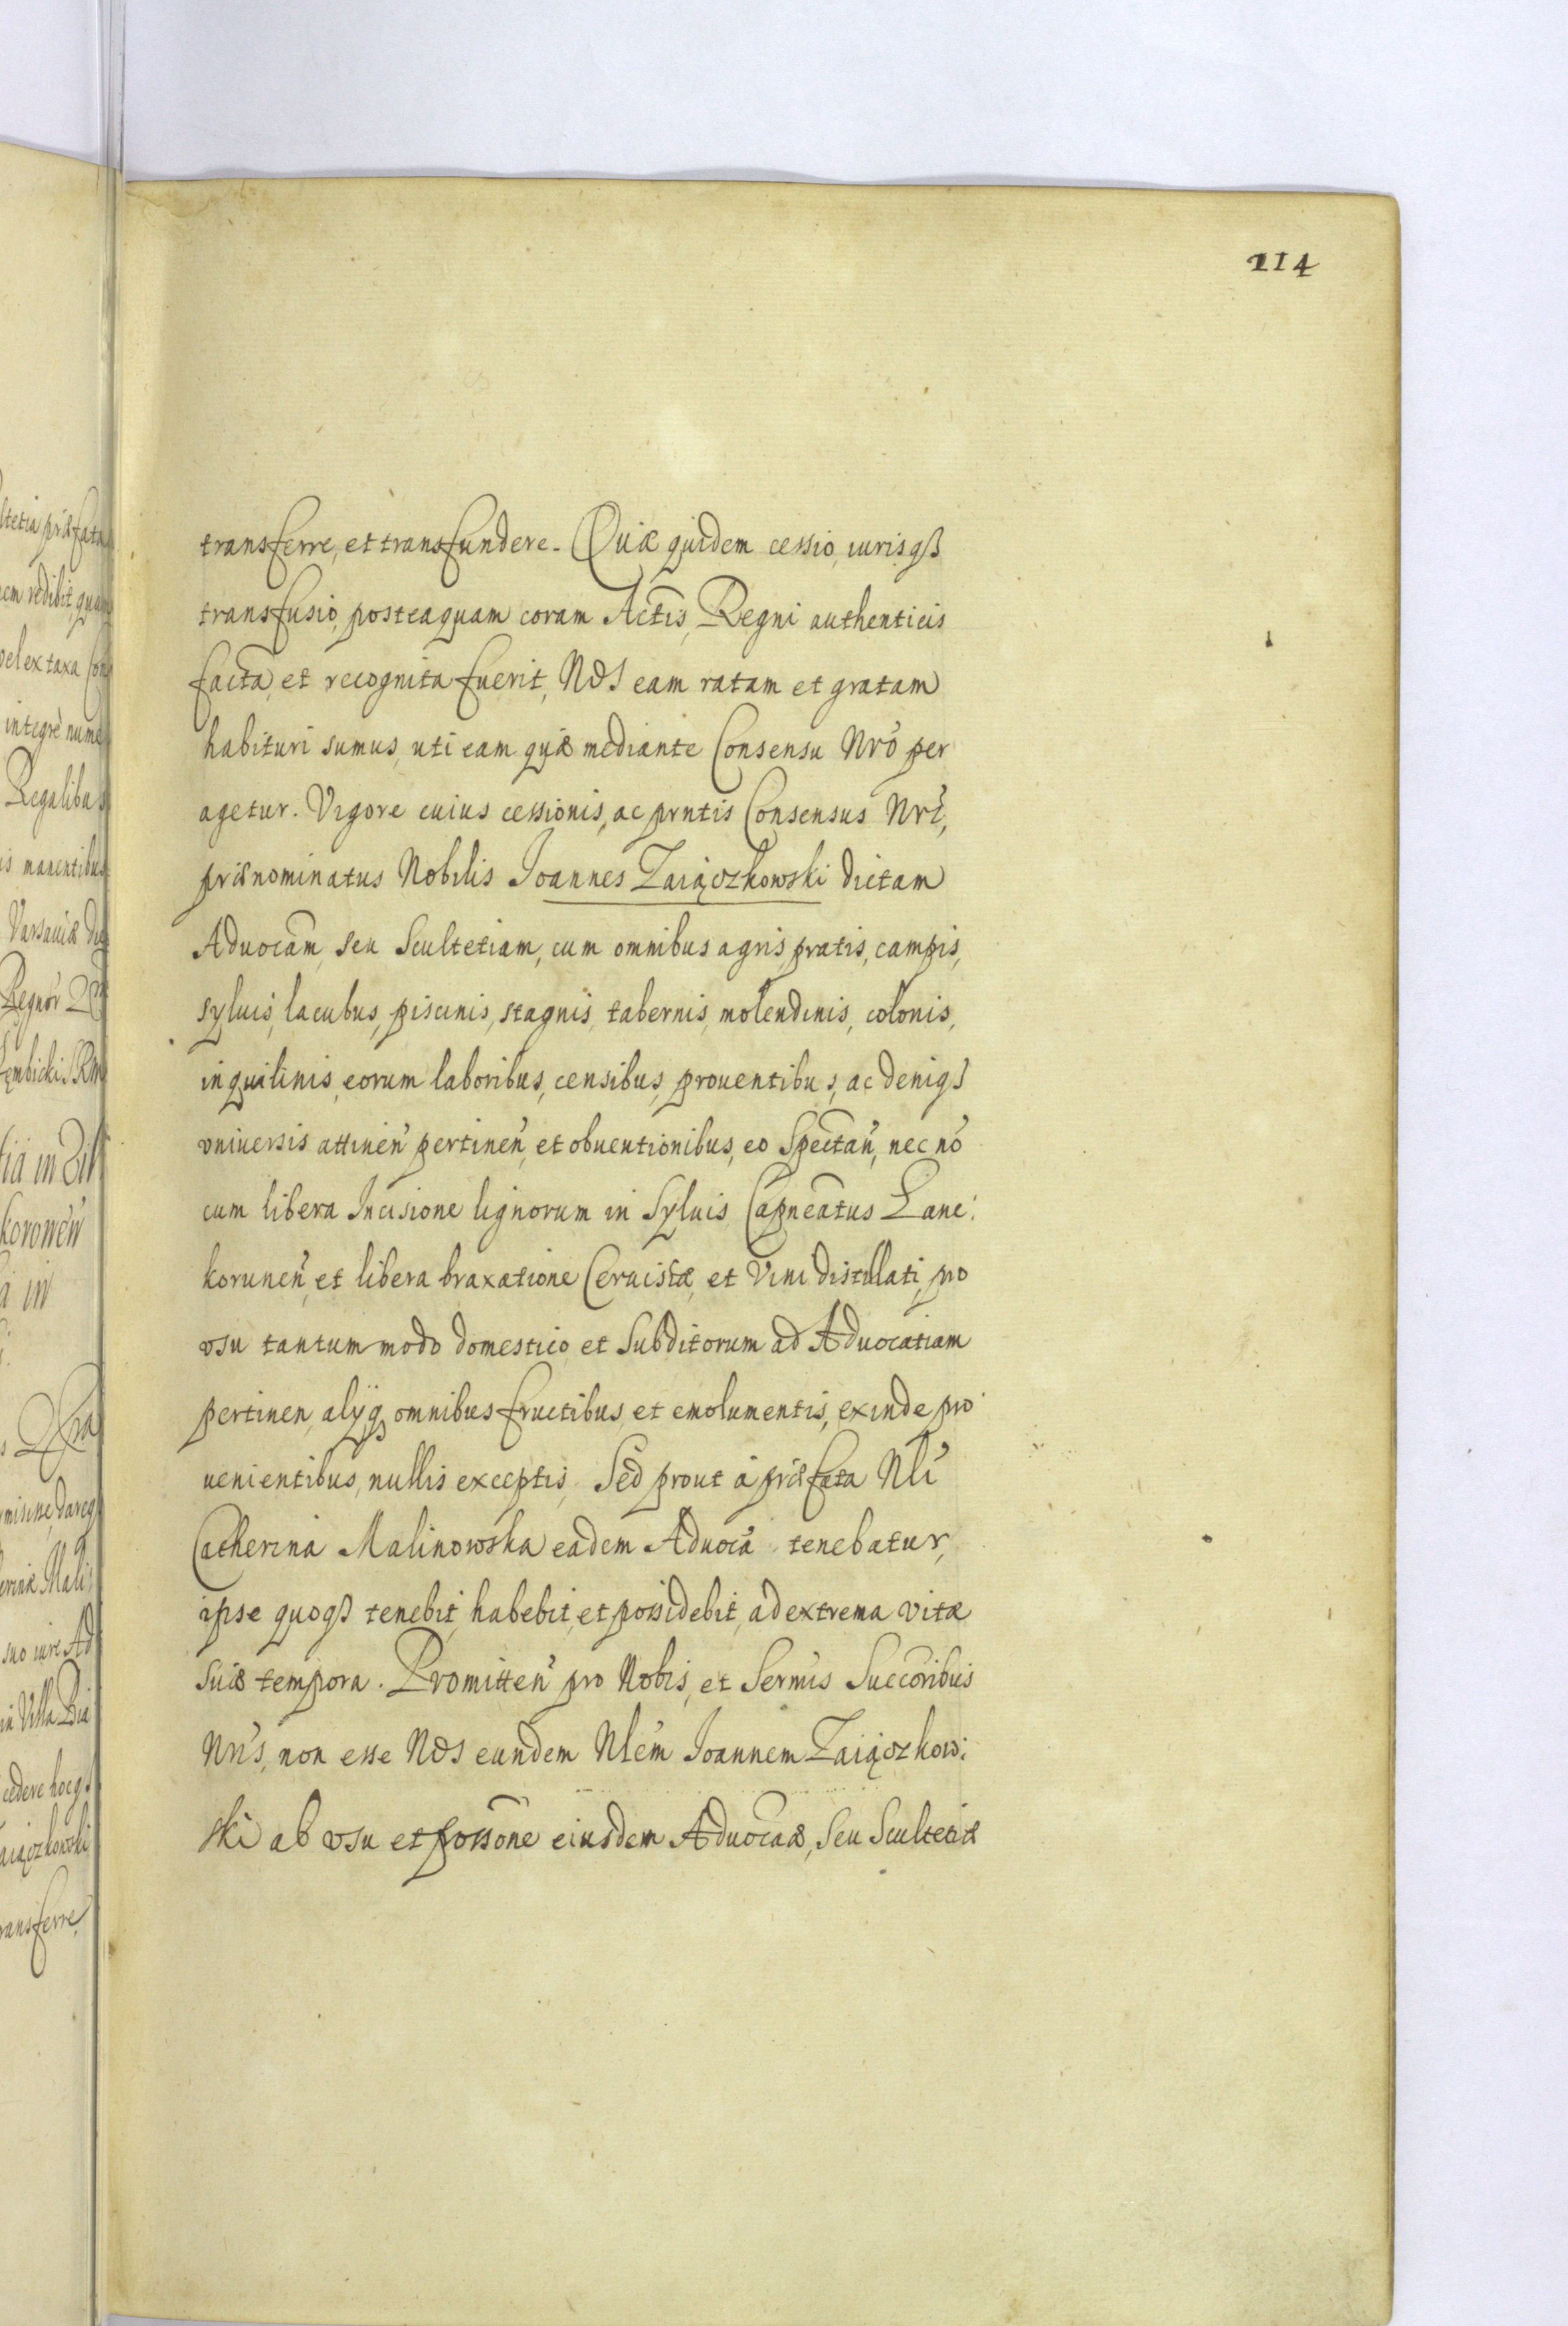 114
transferre, et transfundere. Quæ quidem cessio, iurisqꝫ
transfusio, posteaquam coram Actis, Regni authenticis
facta, et recognita fuerit, Nos eam ratam et gratam
habituri sumus, uti eam quæ mediante Consensu Nrõ per
agetur. Vigore cuius cessionis, ac prntis Consensus Nrĩ,
prænominatus Nobilis Joannes Zaiączkowski dictam
Aduocãm, seu Scultetiam, cum omnibus agris, pratis, campis,
syluis, lacubus, piscinis, stagnis, tabernis, molendinis, colonis,
inquilinis, eorum laboribus, censibus, prouentibus, ac deniqꝫ
vniuersis attineñ pertineñ, et obuentionibus, eo Spectañ, nec nõ
cum libera Incisione lignorum in Syluis Capneatus Lanc:
koruneñ, et libera braxatione Ceruisiæ, et Vini distillati, pro
vsu tantummodo domestico et Subditorum ad Aduocatiam
pertinen, alijqꝫ omnibus fructibus, et emolumentis, exinde pro
uenientibus, nullis exceptis, Sed prout à præfata Nli
Catherina Malinowska eadem Aduocã tenebatur,
ipse quoqꝫ tenebit, habebit, et possidebit, ad extrema vitæ
suæ tempora. Promitteñ pro Nobis, et Sermis Succoribus
Nrĩs, non esse Nos eundem Nlem Joannem Zaiączkow:
ski ab vsu et possone eiusdem Aduocaæ, seu Scultetiæ
ltetia præfata
em redibit, quam
vel ex taxa
integrè nume
Regalibus
is manentibus
Varsauiæ